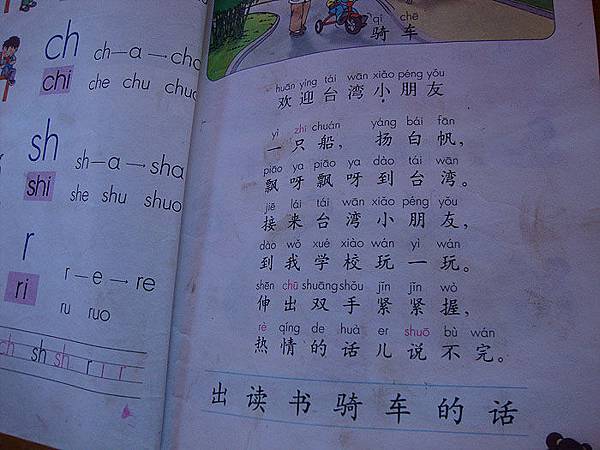 ch ch—a→cha
chi che chu chuo
sh sh—a→sha
shi she shu shuo
r r—e→re
ri ru ruo
ch sh sh r r r
qí chē
骑车
huān yíng tái wān xiǎo péng yǒu
欢迎台湾小朋友
yì zhī chuán yáng bái fān
一只船,扬白帆,
piāo ya piāo ya dào tái wān
飘呀飘呀到台湾。
jiē lái tái wān xiǎo péng yǒu
接来台湾小朋友,
dào wǒ xué xiào wán yì wán
到我学校玩一玩。
shēn chū shuāng shǒu jǐn jǐn wò
伸出双手紧紧握,
rè qíng de huà er shuō bù wán
热情的话儿说不完。
出读书骑车的话